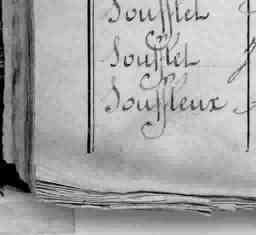 Soufflet
Soufflet
Souffleux